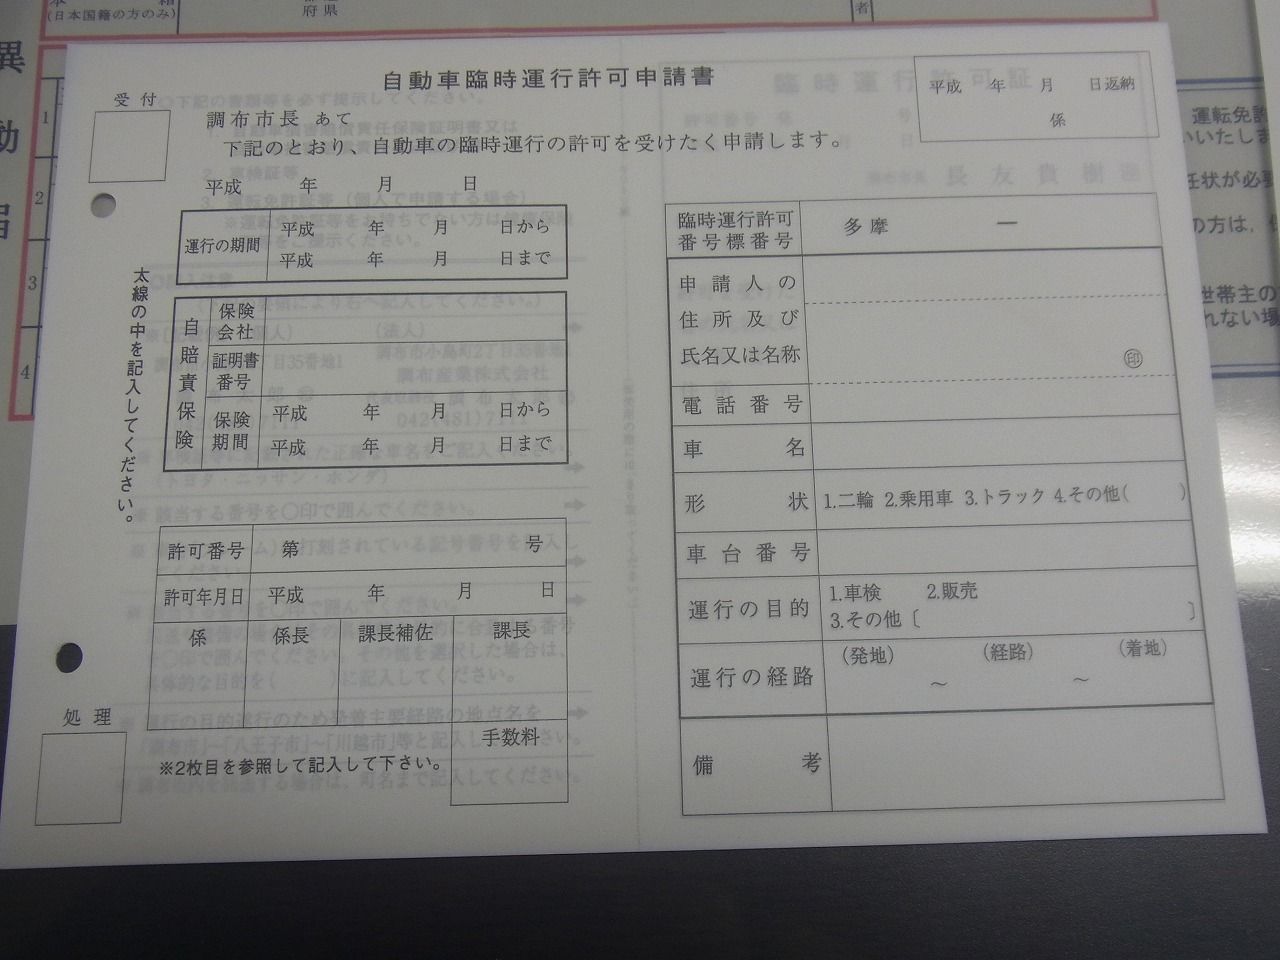 自動車臨時運行許可申請書
受付
調布市長 あて
下記のとおり、自動車の臨時運行の許可を受けたく申請します。
平成 年 月 日
運行の期間
平成 年 月 日から
平成 年 月 日まで
太線の中を記入してください。
自賠責保険
保険会社
証明書番号
保険期間
平成 年 月 日から
平成 年 月 日まで
許可番号 第 号
許可年月日 平成 年 月 日
係 係長 課長補佐 課長
処理
手数料
※2枚目を参照して記入して下さい。
平成 年 月 日返納
係
臨時運行許可
番号標番号
多摩 ー
申請人の
住所及び
氏名又は名称
印
電話番号
車名
形状 1.二輪 2.乗用車 3.トラック 4.その他( )
車台番号
運行の目的
1.車検 2.販売
3.その他〔 〕
運行の経路
(発地) (経路) (着地)
～ ～
備考
(日本国籍の方のみ)
府県
者
異動届
1
2
3
4
運転免許
いいたしま
任状が必要
の方は、
世帯主の
れない場